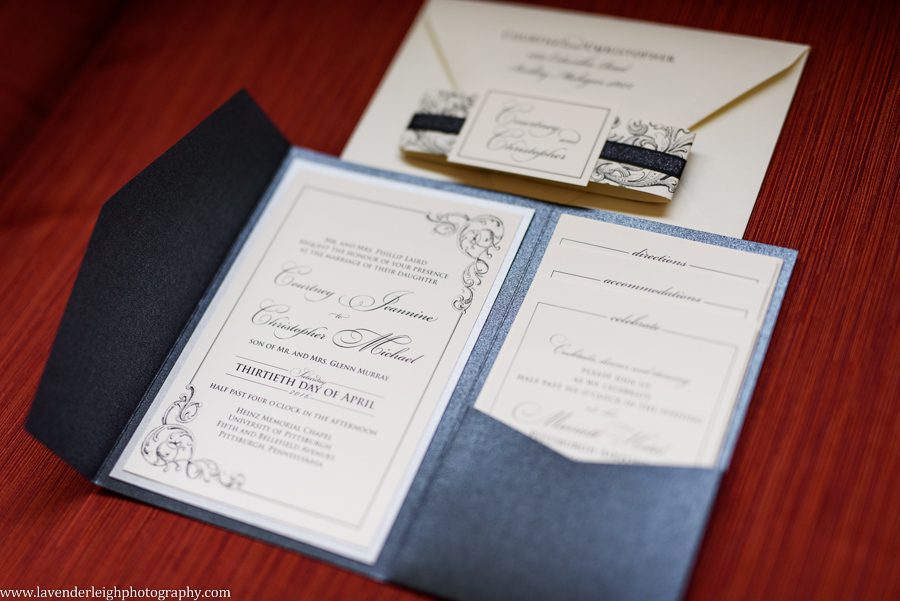 Courtney and
Christopher
Mr. and Mrs. Phillip Laird
request the honour of your presence
at the marriage of their daughter
Courtney Jeannine
to
Christopher Michael
son of Mr. and Mrs. Glenn Murray
Saturday
thirtieth day of April
2016
half past four o'clock in the afternoon
Heinz Memorial Chapel
University of Pittsburgh
Fifth and Bellefield Avenues
Pittsburgh, Pennsylvania
directions
accommodations
celebrate
Cocktails, dinner and dancing
please join us
as we celebrate
half past six o'clock in the evening
at the
www.lavenderleighphotography.com